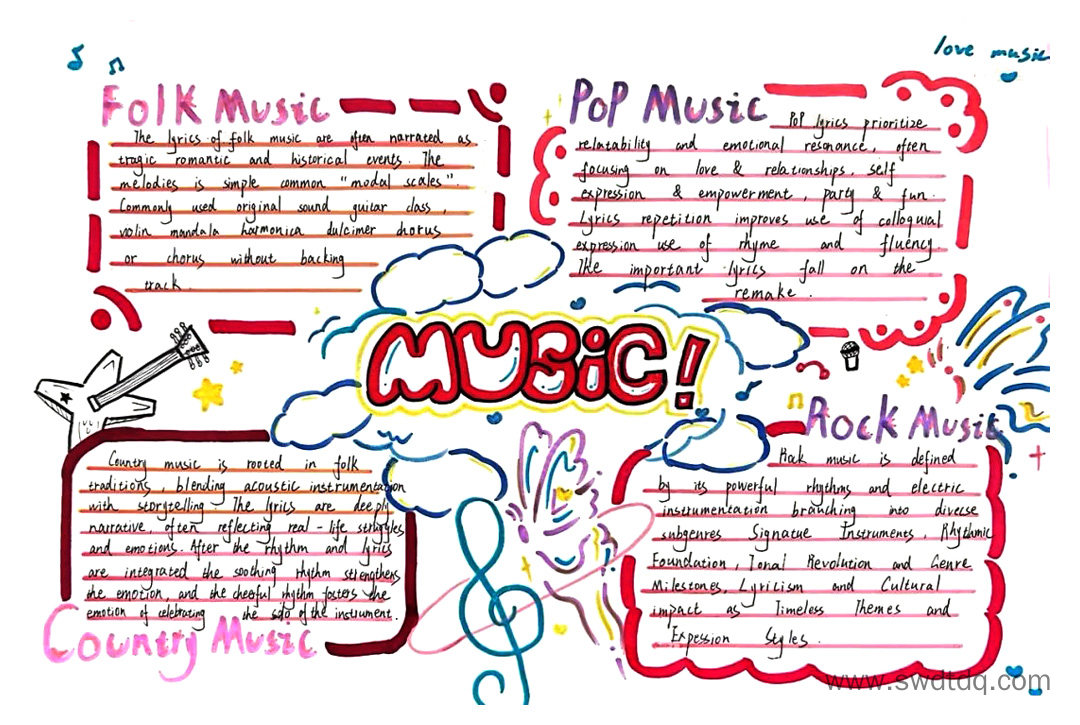 love music
Folk Music
The lyrics of folk music are often narrated as
tragic romantic and historical events. The
melodies is simple common "modal scales".
Commonly used original sound guitar class,
violin mandala harmonica dulcimer chorus
or chorus without backing
track.
Pop Music
Pop lyrics prioritize
relatability and emotional resonance, often
focusing on love & relationships, self
expression & empowerment, party & fun.
Lyrics repetition improves use of colloquial
expression use of rhyme and fluency.
The important lyrics fall on the
remake.
MUSIC!
Country music is rooted in folk
traditions, blending acoustic instrumentation
with storytelling The lyrics are deeply
narrative, often reflecting real-life struggles
and emotions. After the rhythm and lyrics
are integrated the soothing rhythm strengthens
the emotion, and the cheerful rhythm fosters the
emotion of celebrating the solo of the instrument.
Country Music
Rock Music
Rock music is defined
by its powerful rhythms and electric
instrumentation branching into diverse
subgenres Signatue Instruments, Rhythmic
Foundation, Tonal Revolution and Genre
Milestones, Lyricism and Cultural
impact as Timeless Themes and
Expession Styles.
www.swdtdq.com